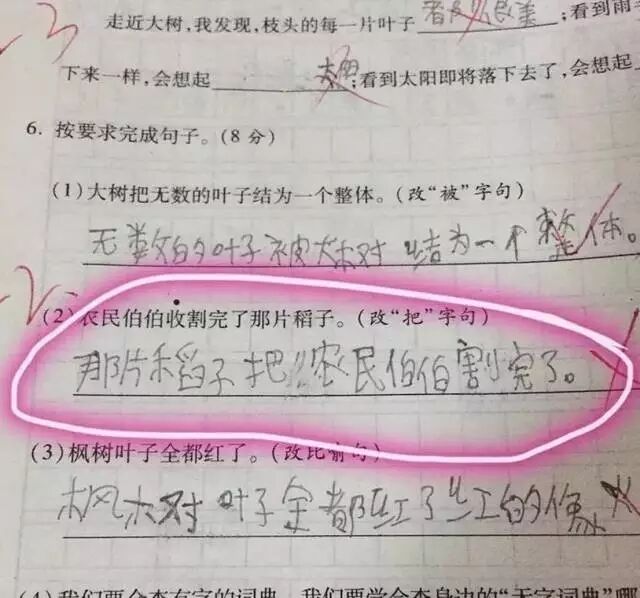 走近大树,我发现,枝头的每一片叶子 ;看到雨
下来一样,会想起 ;看到太阳即将落下去了,会想起
6. 按要求完成句子。(8 分)
(1)大树把无数的叶子结为一个整体。(改“被”字句)
无数的叶子被大树结为一个整体。
(2)农民伯伯收割完了那片稻子。(改“把”字句)
那片稻子把农民伯伯割完了。
(3)枫树叶子全都红了。(改比喻句)
枫树叶子全都红了红的像火
(4)我们要会查有字的词典,我们要学会查身边的“无字词典”哪